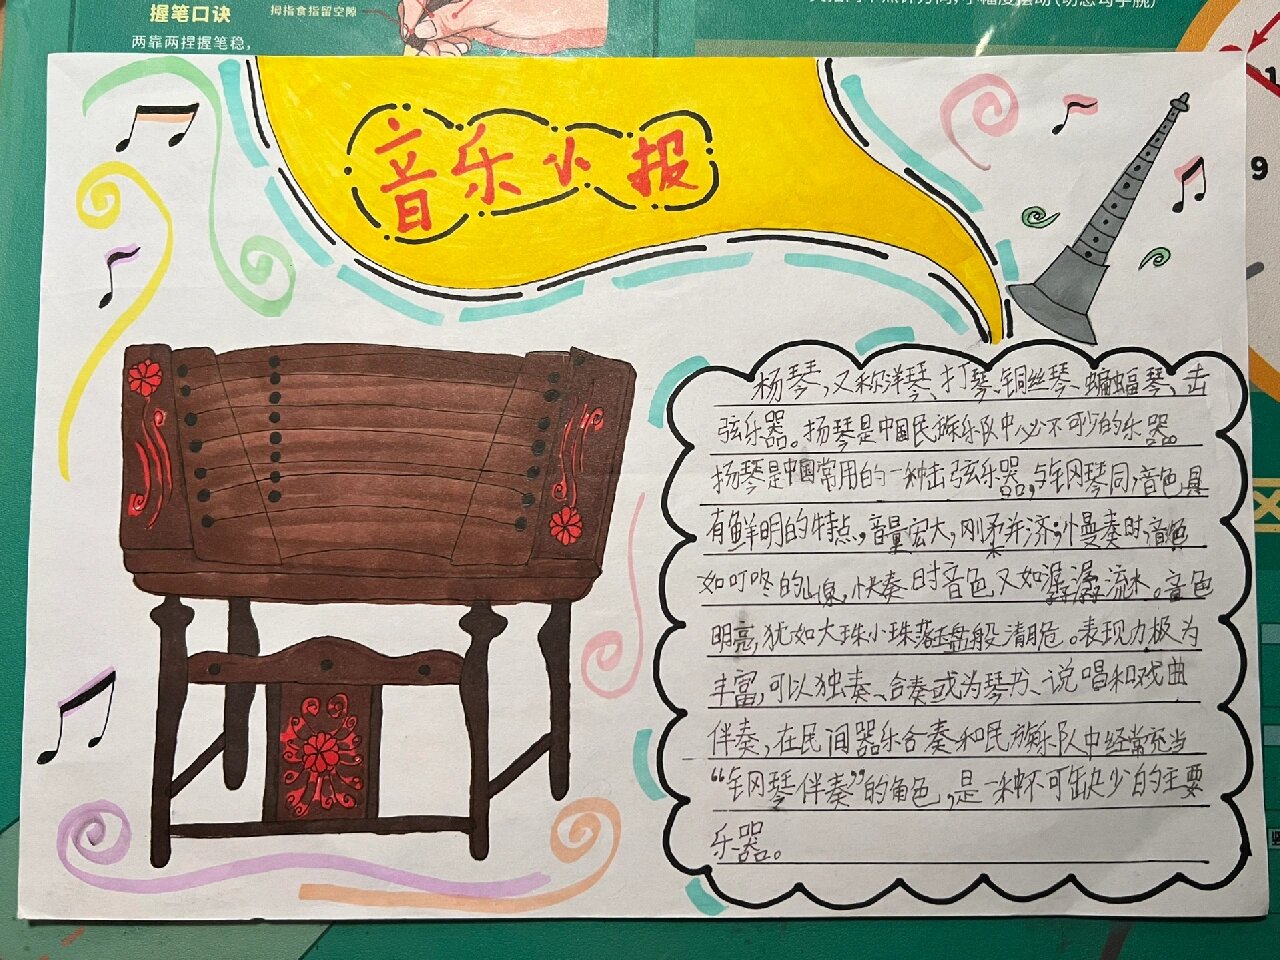 握笔口诀
两靠两捏握笔稳，
拇指食指留空隙
9
音乐小报
杨琴，又称洋琴、打琴、铜丝琴、蝙蝠琴、击
弦乐器。扬琴是中国民族乐队中必不可少的乐器。
扬琴是中国常用的一种击弦乐器，与钢琴同音色具
有鲜明的特点，音量宏大，刚柔并济；慢奏时，音色
如叮咚的山泉，快奏时音色又如潺潺流水。音色
明亮，犹如大珠小珠落玉盘般清脆。表现力极为
丰富，可以独奏、合奏或为琴书、说唱和戏曲
伴奏，在民间器乐合奏和民族乐队中经常充当
“钢琴伴奏”的角色，是一种不可缺少的主要
乐器。